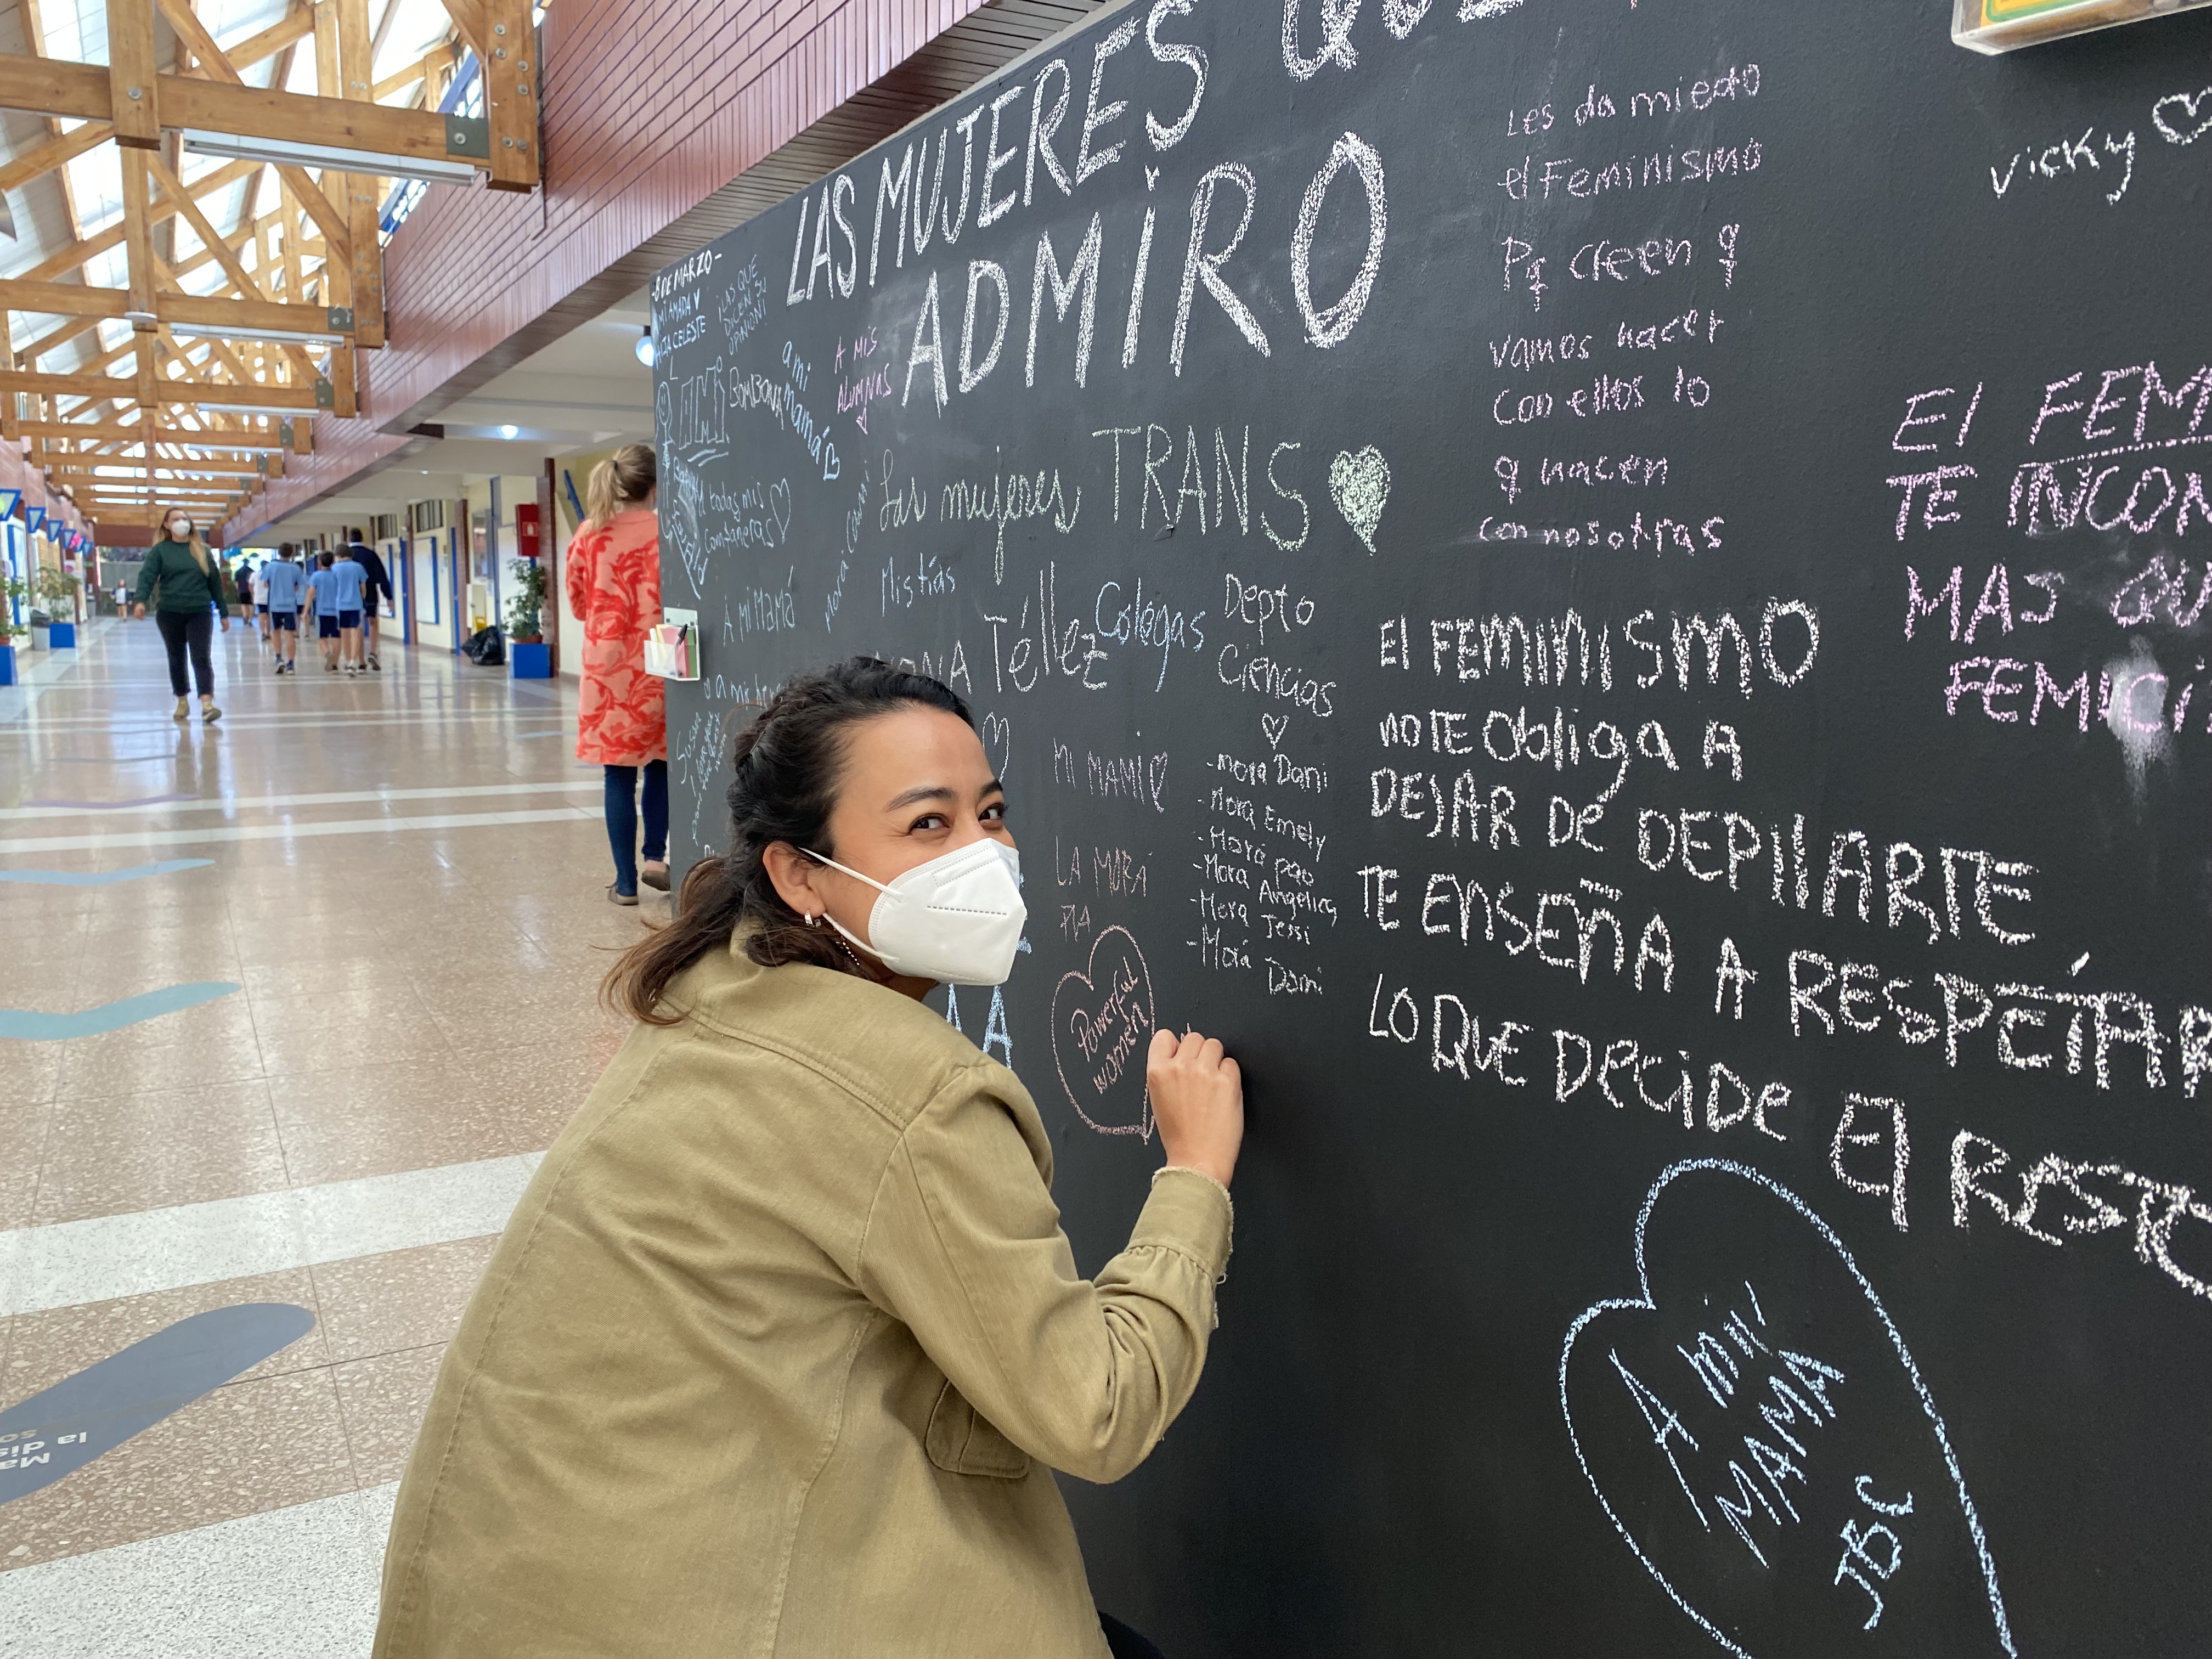 LAS MUJERES QUE
ADMIRO
8 DE MARZO -
MI AMADA
HIJA CELESTE
LAS QUE
DICEN SU
OPINIÓN!
a mi
mamá
A MIS
ALUMNAS
A todas mis
compañeras
A MI MAMÁ
Las mujeres TRANS
Mis tías
Téllez
Colegas
Depto
Ciencias
- Mora Dani
- Mora Emely
- Mora pao
- Mora Angelica
- Mora Jessi
- Mora Dani
MI MAMI
LA MORA
PIA
Powerful
women
Les da miedo
el Feminismo
Pq creen q
vamos hacer
con ellos lo
q hacen
con nosotras
Vicky
El FEM
TE INCOM
MAS QU
FEMICI
El FEMINISMO
NO TE Obliga A
DEJAR DE DEPIlARTE
TE ENSEÑA A RESPETAR
LO QUE DECIDE El RESTO
A mi
MAMA
JBC
Ma
la dis
so